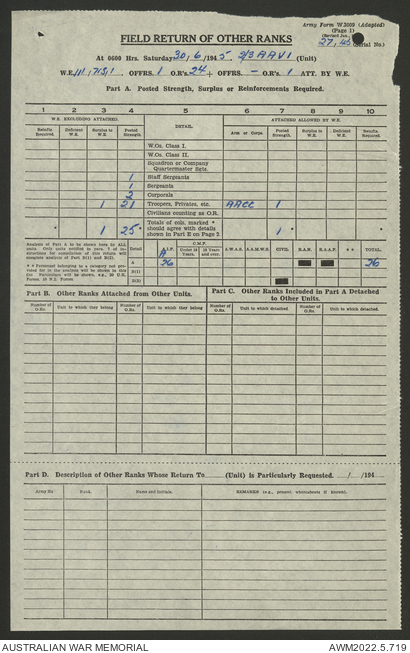 Army Form W.3009 (Adapted)
(Page 1)
(Revised Jan.,
27/45 (Serial No.)
FIELD RETURN OF OTHER RANKS
At 0600 Hrs. Saturday 30/6/1945. 2/3 AAVI (Unit)
W.E. III/715/1 OFFRS. 1 O.R's. 24 + OFFRS. — O.R's. 1 ATT. BY W.E.
Part A. Posted Strength, Surplus or Reinforcements Required.
1 2 3 4 5 6 7 8 9 10
W.E. EXCLUDING ATTACHED. ATTACHED ALLOWED BY W.E.
Reinfts Required. Deficient W.E. Surplus to W.E. Posted Strength. DETAIL Arm or Corps. Posted Strength. Surplus to W.E. Deficient W.E. Reinfts Required.
W.Os. Class I.
W.Os. Class II.
Squadron or Company Quartermaster Sgts.
1 Staff Sergeants
1 Sergeants
2 Corporals
1 21 Troopers, Privates, etc. AACC 1
Civilians counting as O.R.
* 1 25 * Totals of cols. marked * should agree with details shown in Part E on Page 3. * 1 *
Analysis of Part A to be shown here by ALL
Detail A.I.F. C.M.F. Under 19 Years. 19 Years and over. A.W.A.S. A.A.M.W.S. CIVIL R.A.N. R.A.A.F. * * TOTAL.
A
A 26 26
B(1)
B(2)
Part B. Other Ranks Attached from Other Units.
Part C. Other Ranks Included in Part A Detached to Other Units.
Number of O.Rs. Unit to which they belong Number of O.Rs. Unit to which they belong Number of O.Rs. Unit to which detached. Number of O.Rs. Unit to which detached.
Part D. Description of Other Ranks Whose Return To (Unit) is Particularly Requested. / /194
Army No. Rank. Name and Initials. REMARKS (e.g., present whereabouts if known).
AUSTRALIAN WAR MEMORIAL AWM2022.5.719